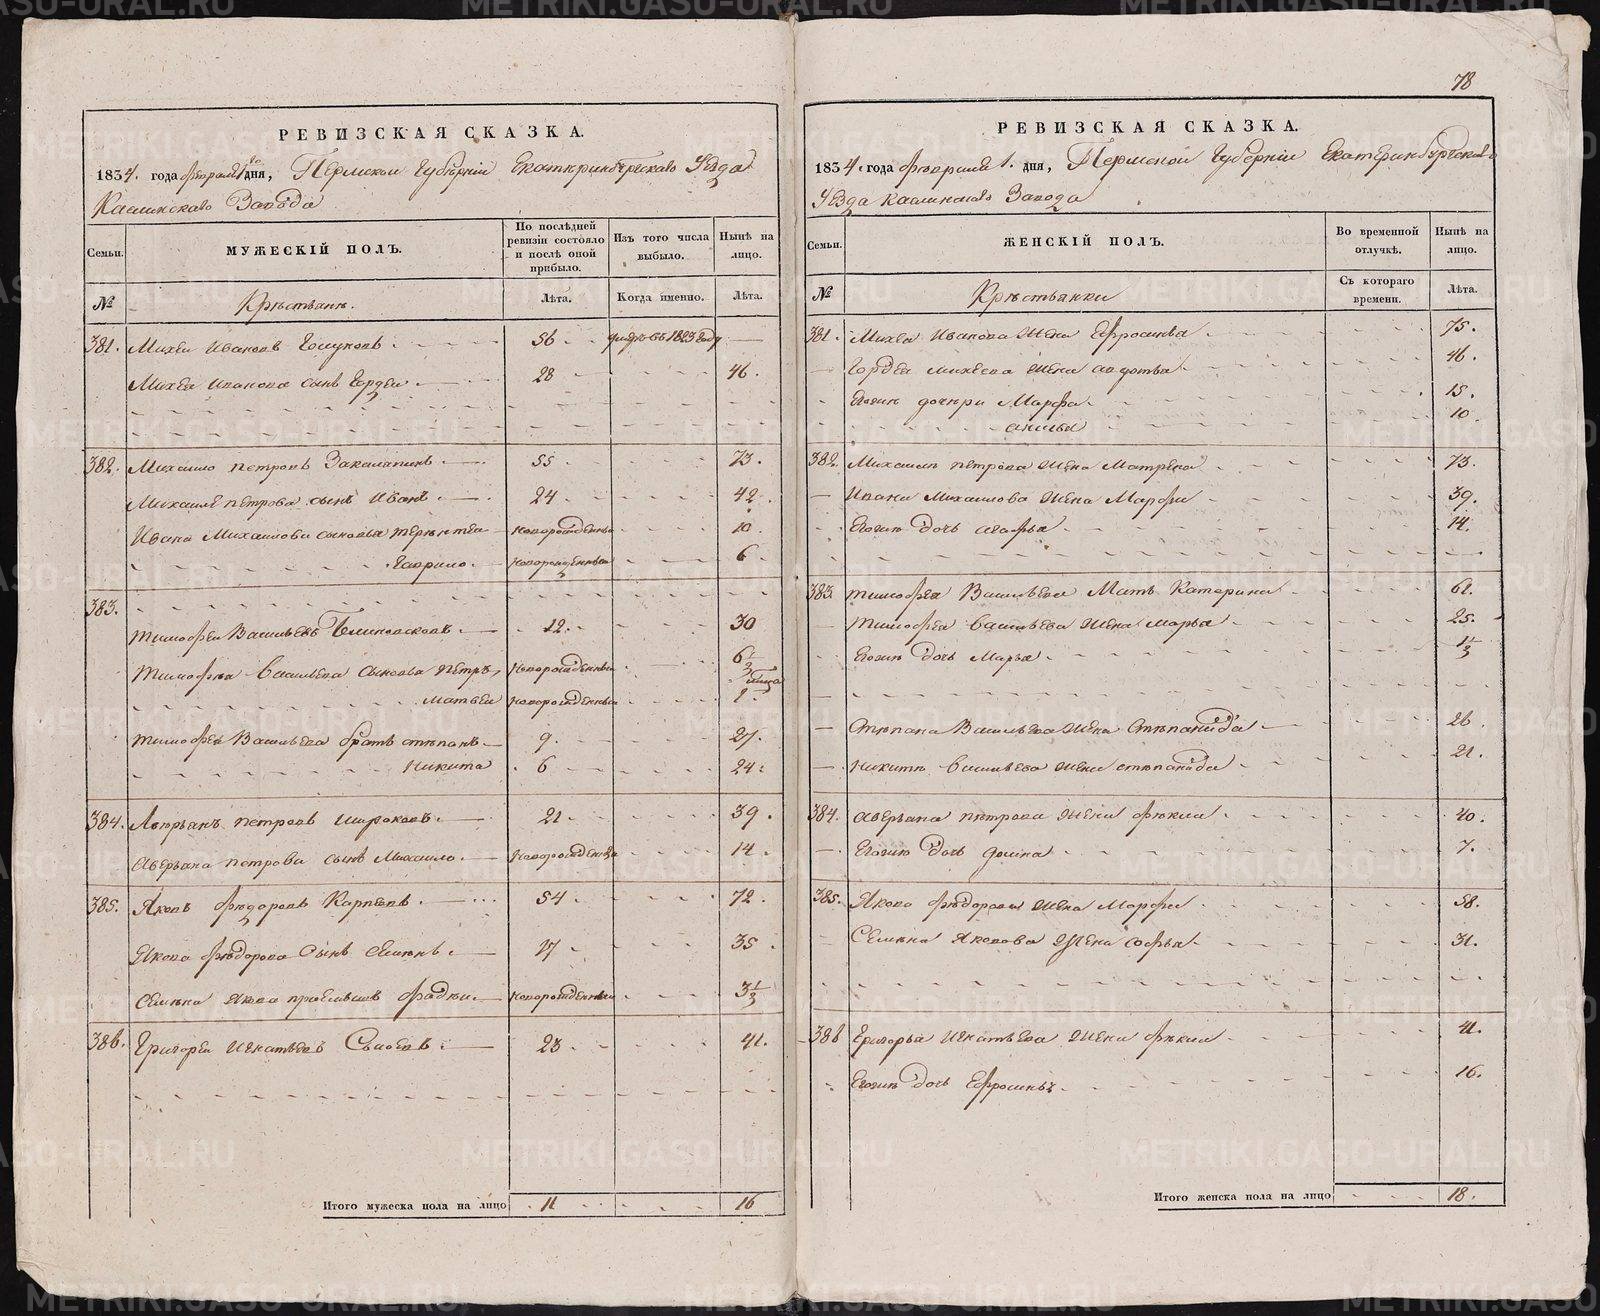 78
РЕВИЗСКАЯ СКАЗКА.
1834. года февраля 1го дня, Пермской Губернiи Екатеринбургскаго Уезда
Каслинскаго Завода
Семьи.
МУЖЕСКIЙ ПОЛЪ.
По послѣдней ревизiи состояло и послѣ оной прибыло.
Изъ того числа выбыло.
Нынѣ на лицо.
№
Крестьяне.
Лѣта.
Когда именно.
Лѣта.
381. Михей Ивановъ 56 умре въ 1823 году
Михея Иванова сынъ Гордей 28 46.
382. Михайло Петровъ 55 73.
Михайлы Петрова сынъ Иванъ 24 42.
Ивана Михайлова сыновья Терентей новорожденны 10
Гаврило. новорожденны 6
383.
Тимофей Васильевъ 12. 30
Тимофея Васильева сыновья Петръ, новорожденны 6
Матвей новорожденны
Тимофея Васильева братъ Степанъ 9. 27.
Никита 6 24.
384. Аверьянъ Петровъ Широковъ. 21 39.
Аверьяна Петрова сынъ Михайло. новорожденны 14.
385. Яковъ Федоровъ Карповъ. 54 72.
Якова Федорова сынъ Семенъ. 17 35
Семена Якова новорожденны 3 1/3
386. Григорей Игнатьевъ 23 41.
Итого мужеска пола на лицо 11 16
РЕВИЗСКАЯ СКАЗКА.
1834. года февраля 1. дня, Пермской Губернiи Екатеринбургскаго
Уезда Каслинскаго Завода
Семьи.
ЖЕНСКIЙ ПОЛЪ.
Во временной отлучкѣ.
Нынѣ на лицо.
№
Крестьянки
Съ котораго времени.
Лѣта.
381. Михея Иванова жена Ефросинья 75.
Гордея Михеева жена Авдотья 46.
Егоже дочери Марфа 15.
Анисья 10
382. Михайлы Петрова жена Матрена 73.
Ивана Михайлова жена Марфа 39.
Егоже дочь Агафья 14.
383. Тимофея Васильева мать Катерина 61.
Тимофея Васильева жена Марья 25.
Егоже дочь Марья
Степана Васильева жена Степанида 26
Никиты Васильева жена Степанида 21.
384. Аверьяна Петрова жена Фекла 40.
Егоже дочь 7.
385. Якова Федорова жена Марфа 58.
Семена Якова жена Софья 31.
386 Григорья Игнатьева жена Фекла 41.
Егоже дочь Ефросинья 16.
Итого женска пола на лицо 18.
METRIKI.GASO-URAL.RU